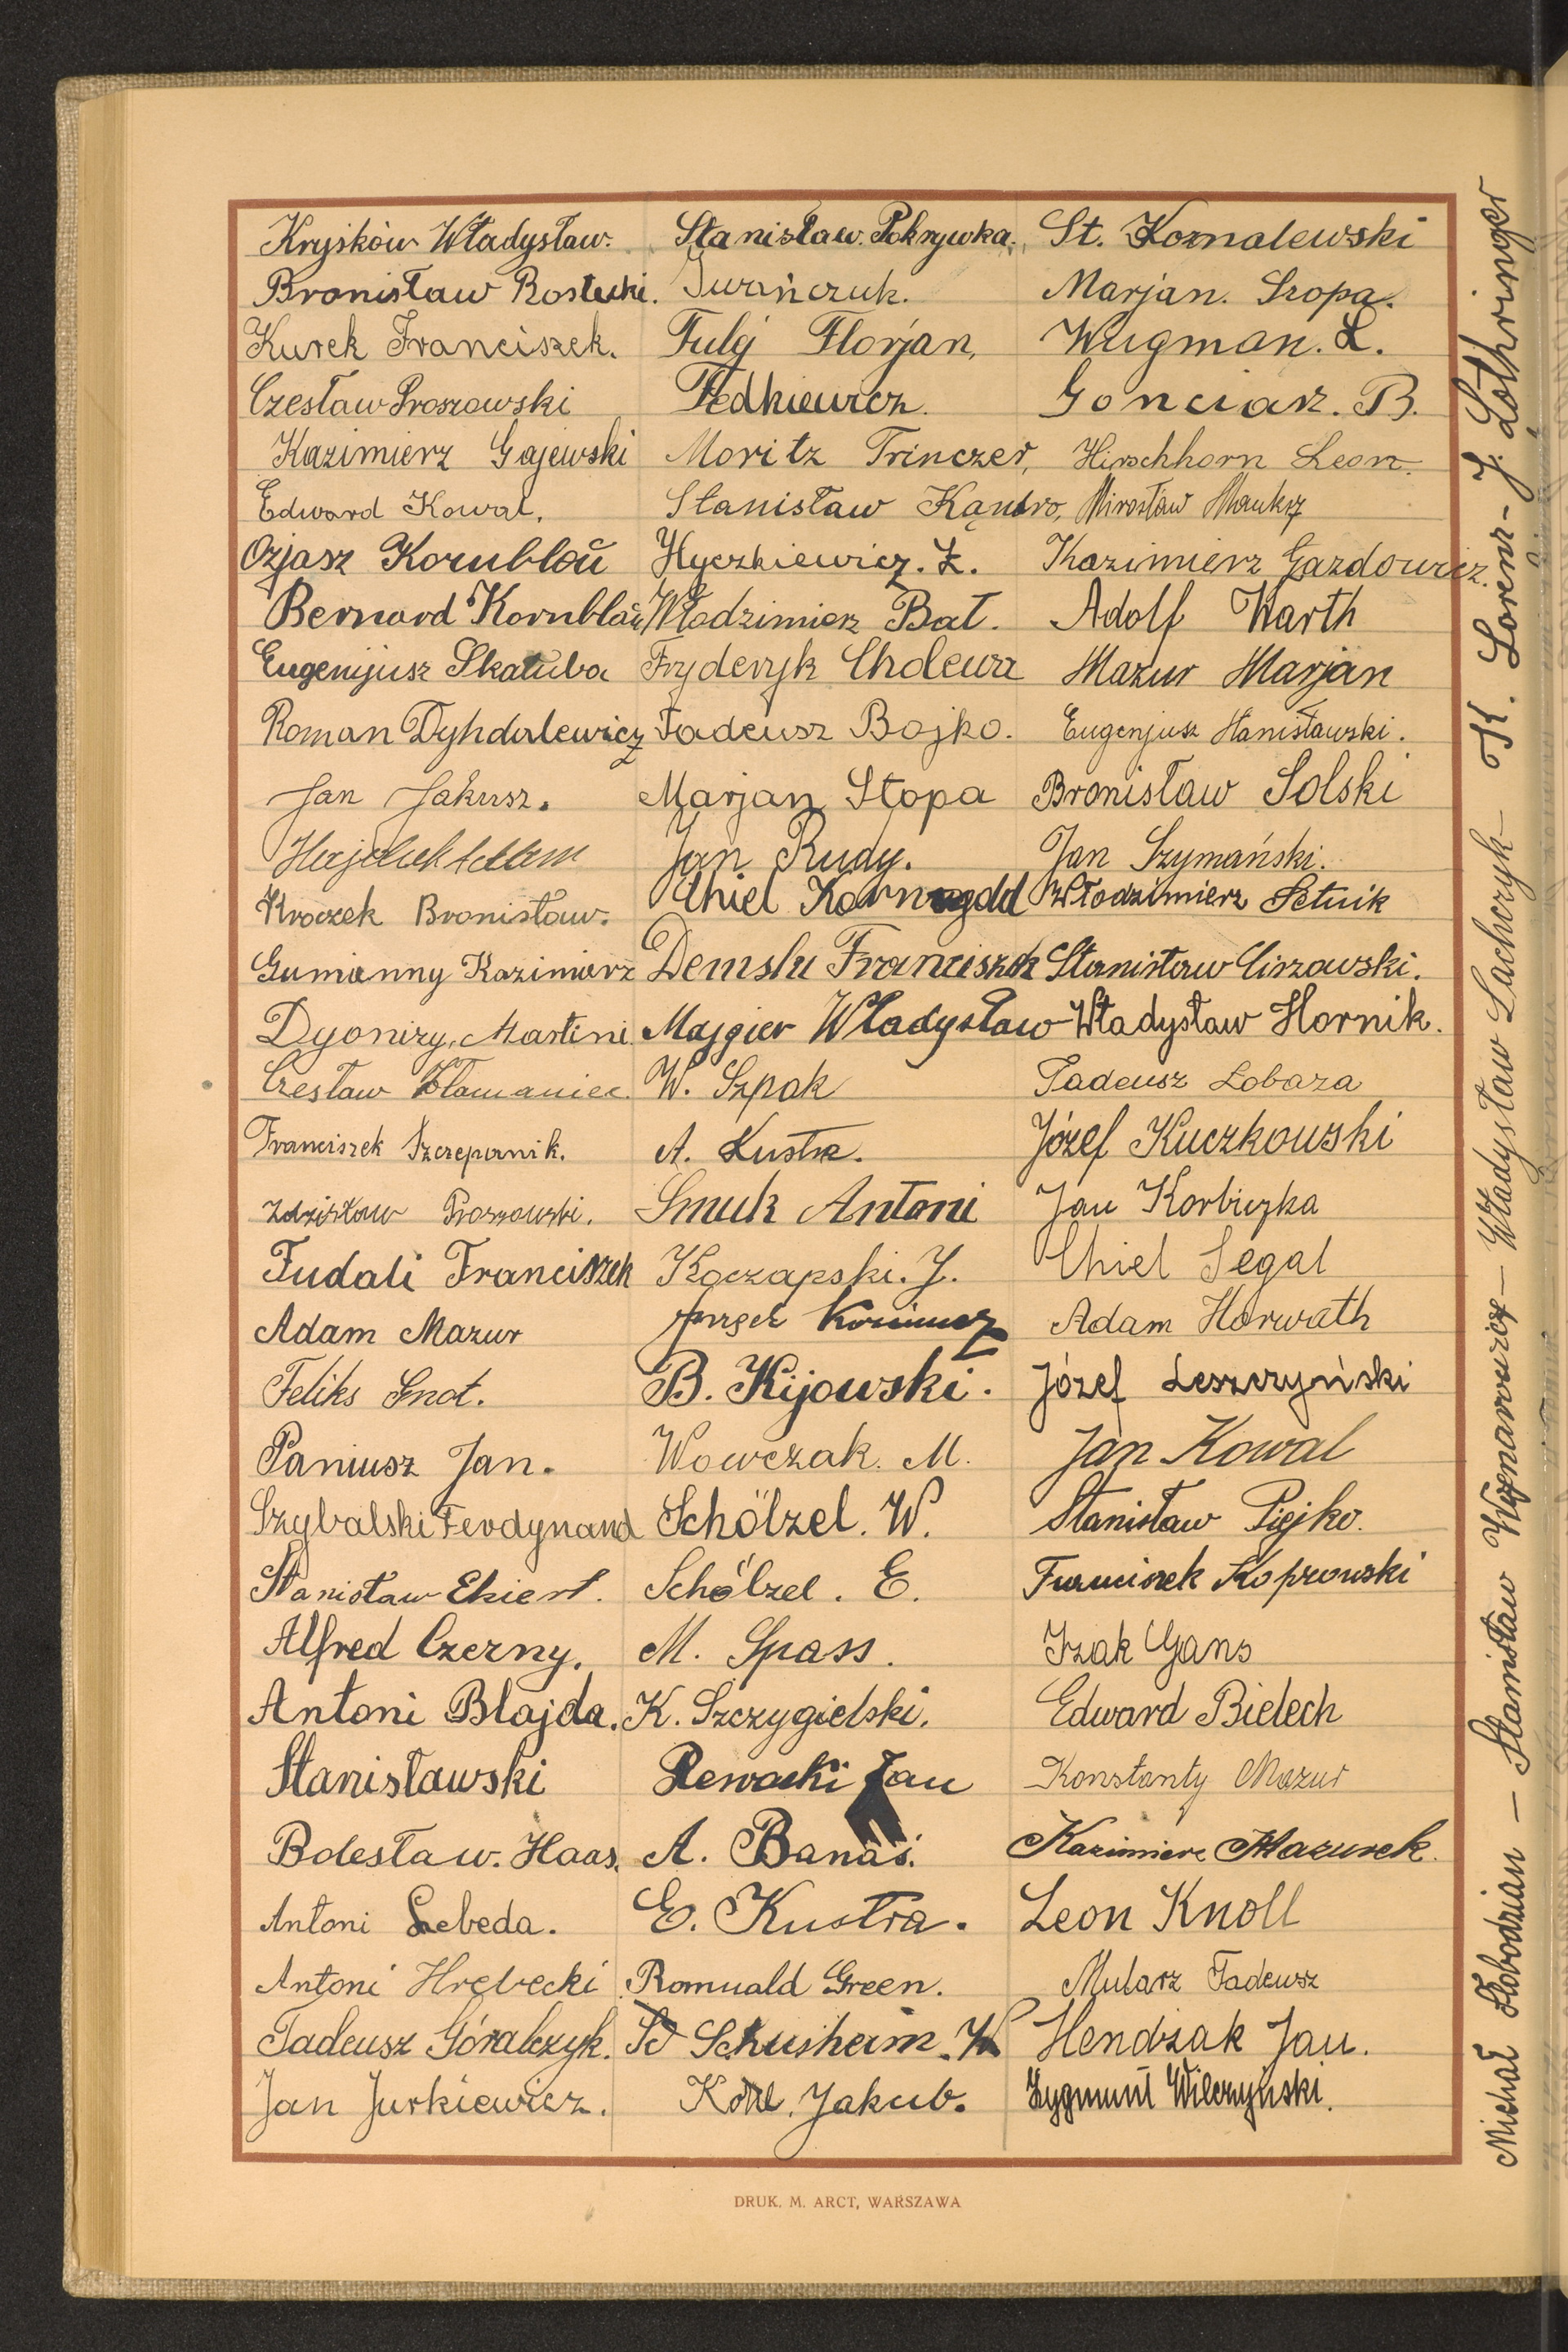 Kryśków Władysław.
Bronisław Rostecki.
Kurek Franciszek.
Czesław Proszowski
Kazimierz Gajewski
Edward Kowal.
Ozjasz Kornblau
Bernard Kornblau
Eugenijusz Skałuba
Roman Dyhdalewicz
Jan Jakusz.
Kroczek Bronisław.
Gumienny Kazimierz
Dyonizy Martini
Czesław Złamaniec
Franciszek Szczepanik.
Zdzisław Proszowski.
Fudali Franciszek
Adam Mazur
Feliks Gnot.
Paniusz Jan.
Szybalski Ferdynand
Stanisław Ekiert.
Alfred Czerny.
Antoni Blajda.
Stanisławski
Bolesław. Haas.
Antoni Lebeda.
Antoni Hrebecki
Tadeusz Góralczyk.
Jan Jurkiewicz.
Stanisław. Pokrywka.
Iwańczuk.
Fulj Florjan,
Fedkiewicz.
Moritz Trinczer,
Stanisław
Hyczkiewicz. Z.
Włodzimierz Bał.
Fryderyk Cholewa
Tadeusz Bojko.
Marjan Stopa
Jan Rudy.
Chiel
Franciszek
Majgier Władysław
W. Szpak
A. Kustra.
Smuk Antoni
Koczapski. J.
B. Kijowski.
Wowczak. M.
Schölzel. W.
Schölzel. E.
M. Spass.
K. Szczygielski.
Rewacki Jan
A. Banaś.
E. Kustra.
Romuald Green.
Schusheim. W
Jakub.
St. Kornalewski
Marjan. Sropa.
Wugman. L.
Gonciarz. B.
Hirschhorn Leon.
Mirosław
Kazimierz Gazdowicz.
Adolf Warth
Mazur Marjan
Eugenjusz Stanisławski.
Bronisław Solski
Jan Szymański.
Włodzimierz Setnik
Stanisław Ciszowski.
Władysław Hornik.
Tadeusz Lobaza
Józef Kuczkowski
Jan Korbiczka
Chiel Segal
Adam Horwath
Józef Leszczyński
Jan Kowal
Stanisław Piejko.
Franciszek Koprowski
Izak Gans
Edward Bielech
Konstanty Mazur
Kazimierz Mazurek.
Leon Knoll
Mularz Tadeusz
Hendzak Jan.
Zygmunt Wilczyński.
Michał Słobodzian — Stanisław Wojnarowicz — Władysław Lachczyk — K. Lorenz - J. Lothringer
DRUK. M. ARCT, WARSZAWA